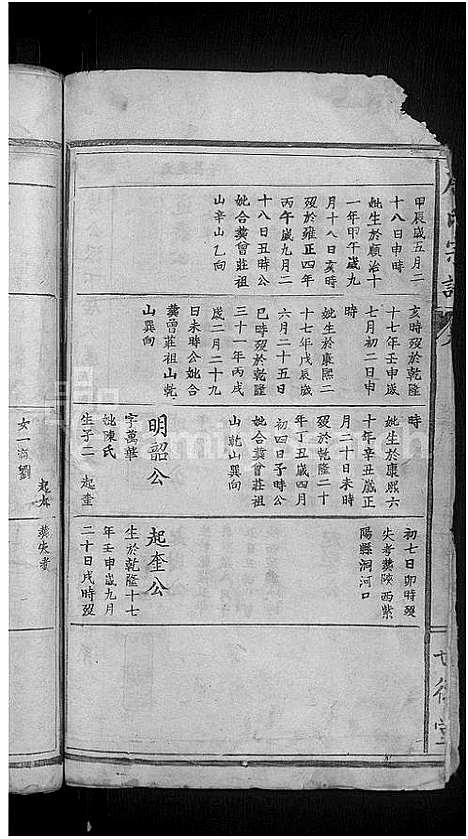 甲辰歲五月二
十八日申時
妣生於順治十
一年甲午歲九
月十八日亥時
歿於雍正四年
丙午歲九月二
十八日丑時公
妣合葬曾莊祖
山辛山乙向
亥時歿於乾隆
十七年壬申歲
七月初二日申
時
妣生於康熙二
十七年戊辰歲
六月二十五日
巳時歿於乾隆
三十一年丙戌
歲二月二十九
日未時公妣合
葬曾莊祖山乾
山巽向
時
妣生於康熙六
十年辛丑歲正
月二十日未時
歿於乾隆二十
年丁丑歲四月
初四日子時公
妣合葬曾莊祖
山乾山巽向
明韶公
字萬華
妣陳氏
生子二 起奎
初七日卯時歿
失考葬陝西紫
陽縣洞河口
起奎公
生於乾隆十七
年壬申歲九月
二十日戌時歿
宗譜
女一適劉
葬失考